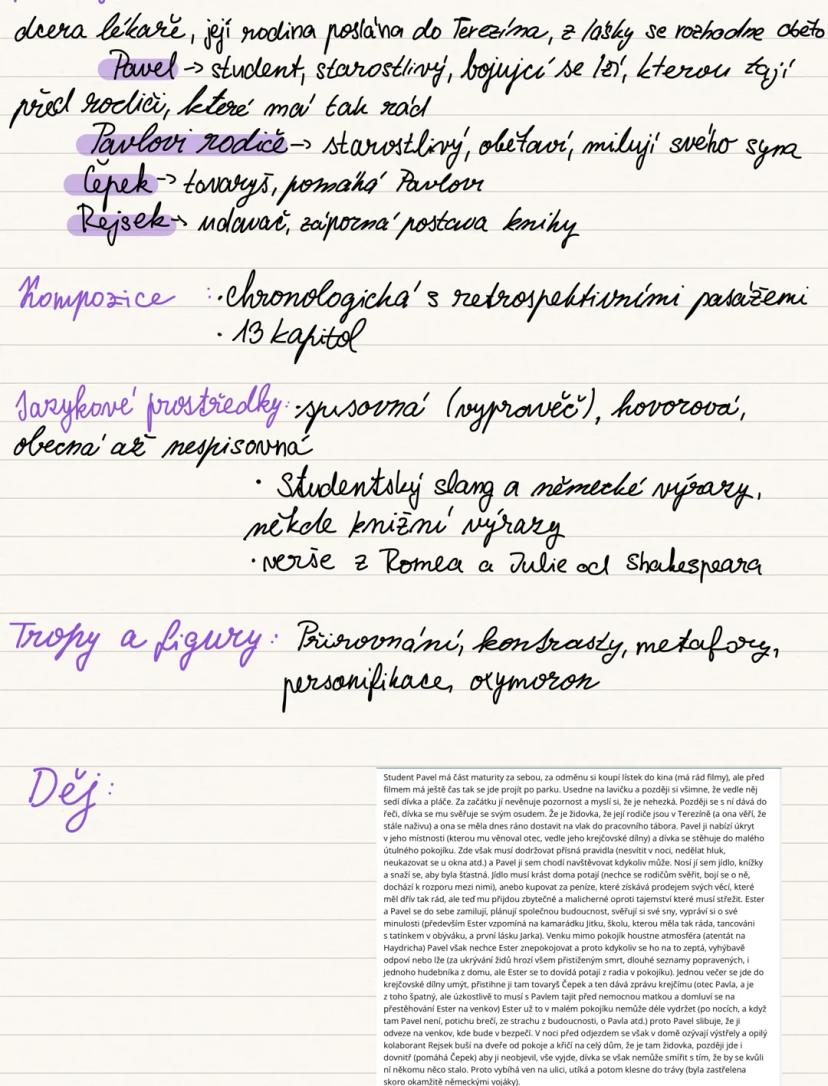 dcera lékaře, její rodina poslána do Terezína, z lásky se rozhodne oběto
Pavel -> student, starostlivý, bojující se lží, kterou tají
před rodiči, které má tak rád
Pavlovi rodiče -> starostlivý, obětaví, milují svého syna
Čepek -> tovaryš, pomáhá Pavlovi
Rejsek -> udavač, záporná postava knihy
Kompozice : · chronologická s retrospektivními pasážemi
· 13 kapitol
Jazykové prostředky: · spisovná (vypravěč), hovorová,
obecná až nespisovná
· Studentský slang a německé výrazy,
někde knižní výrazy
· verše z Romea a Julie od Shakespeara
Tropy a figury: Přirovnání, kontrasty, metafory,
personifikace, oxymoron
Děj:
Student Pavel má část maturity za sebou, za odměnu si koupí lístek do kina (má rád filmy), ale před
filmem má ještě čas tak se jde projít po parku. Usedne na lavičku a později si všimne, že vedle něj
sedí dívka a pláče. Za začátku jí nevěnuje pozornost a myslí si, že je nehezká. Později se s ní dává do
řeči, dívka se mu svěřuje se svým osudem. Že je židovka, že její rodiče jsou v Terezíně (a ona věří, že
stále naživu) a ona se měla dnes ráno dostavit na vlak do pracovního tábora. Pavel jí nabízí úkryt
v jeho místnosti (kterou mu věnoval otec, vedle jeho krejčovské dílny) a dívka se stěhuje do malého
útulného pokojíku. Zde však musí dodržovat přísná pravidla (nesvítit v noci, nedělat hluk,
neukazovat se u okna atd.) a Pavel ji sem chodí navštěvovat kdykoliv může. Nosí jí sem jídlo, knížky
a snaží se, aby byla šťastná. Jídlo musí krást doma potají (nechce se rodičům svěřit, bojí se o ně,
dochází k rozporu mezi nimi), anebo kupovat za peníze, které získává prodejem svých věcí, které
měl dřív tak rád, ale teď mu přijdou zbytečné a malicherné oproti tajemství které musí střežit. Ester
a Pavel se do sebe zamilují, plánují společnou budoucnost, svěřují si své sny, vypráví si o své
minulosti (především Ester vzpomíná na kamarádku Jitku, školu, kterou měla tak ráda, tancování
s tatínkem v obýváku, a první lásku Jarka). Venku mimo pokojík houstne atmosféra (atentát na
Haydricha) Pavel však nechce Ester znepokojovat a proto kdykoliv se ho na to zeptá, vyhýbavě
odpoví nebo lže (za ukrývání židů hrozí všem přistiženým smrt, dlouhé seznamy popravených, i
jednoho hudebníka z domu, ale Ester se to dovídá potají z radia v pokojíku). Jednou večer se jde do
krejčovské dílny umýt, přistihne ji tam tovaryš Čepek a ten dává zprávu krejčímu (otec Pavla, a je
z toho špatný, ale úzkostlivě to musí s Pavlem tajit před nemocnou matkou a domluví se na
přestěhování Ester na venkov) Ester už to v malém pokojíku nemůže déle vydržet (po nocích, a když
tam Pavel není, potichu brečí, ze strachu z budoucnosti, o Pavla atd.) proto Pavel slibuje, že ji
odveze na venkov, kde bude v bezpečí. V noci před odjezdem se však v domě ozývají výstřely a opilý
kolaborant Rejsek buší na dveře od pokoje a křičí na celý dům, že je tam židovka, později jde i
dovnitř (pomáhá Čepek) aby ji neobjevil, vše vyjde, dívka se však nemůže smířit s tím, že by se kvůli
ní někomu něco stalo. Proto vybíhá ven na ulici, utíká a potom klesne do trávy (byla zastřelena
skoro okamžitě německými vojáky).